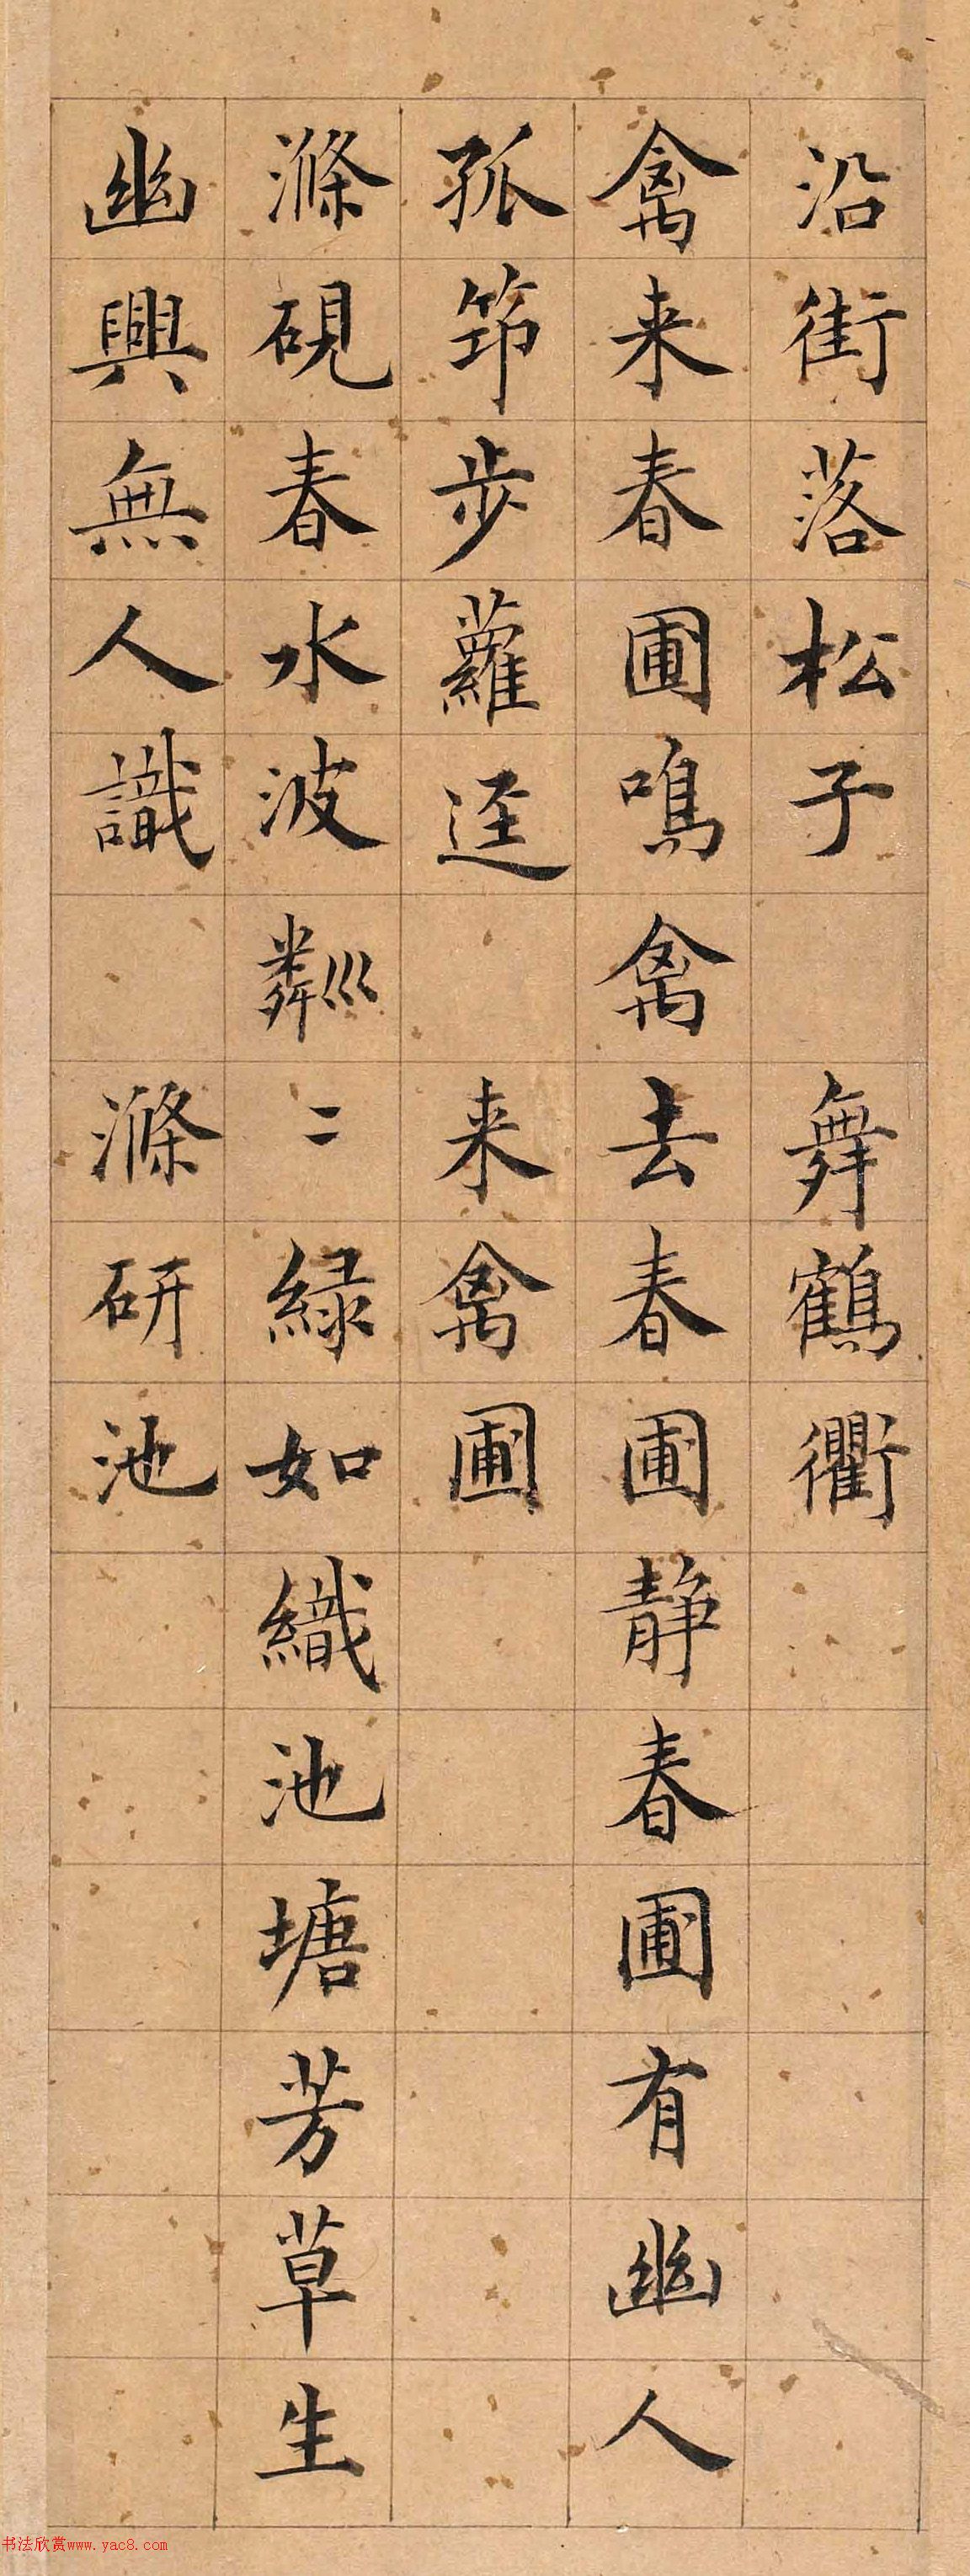 沿街落松子 舞鶴衢
禽来春圃鳴禽去春圃静春圃有幽人
孤筇步蘿逕 来禽圃
滌硯春水波粼〻緑如織池塘芳草生
幽興無人識 滌研池
书法欣赏www.yac8.com